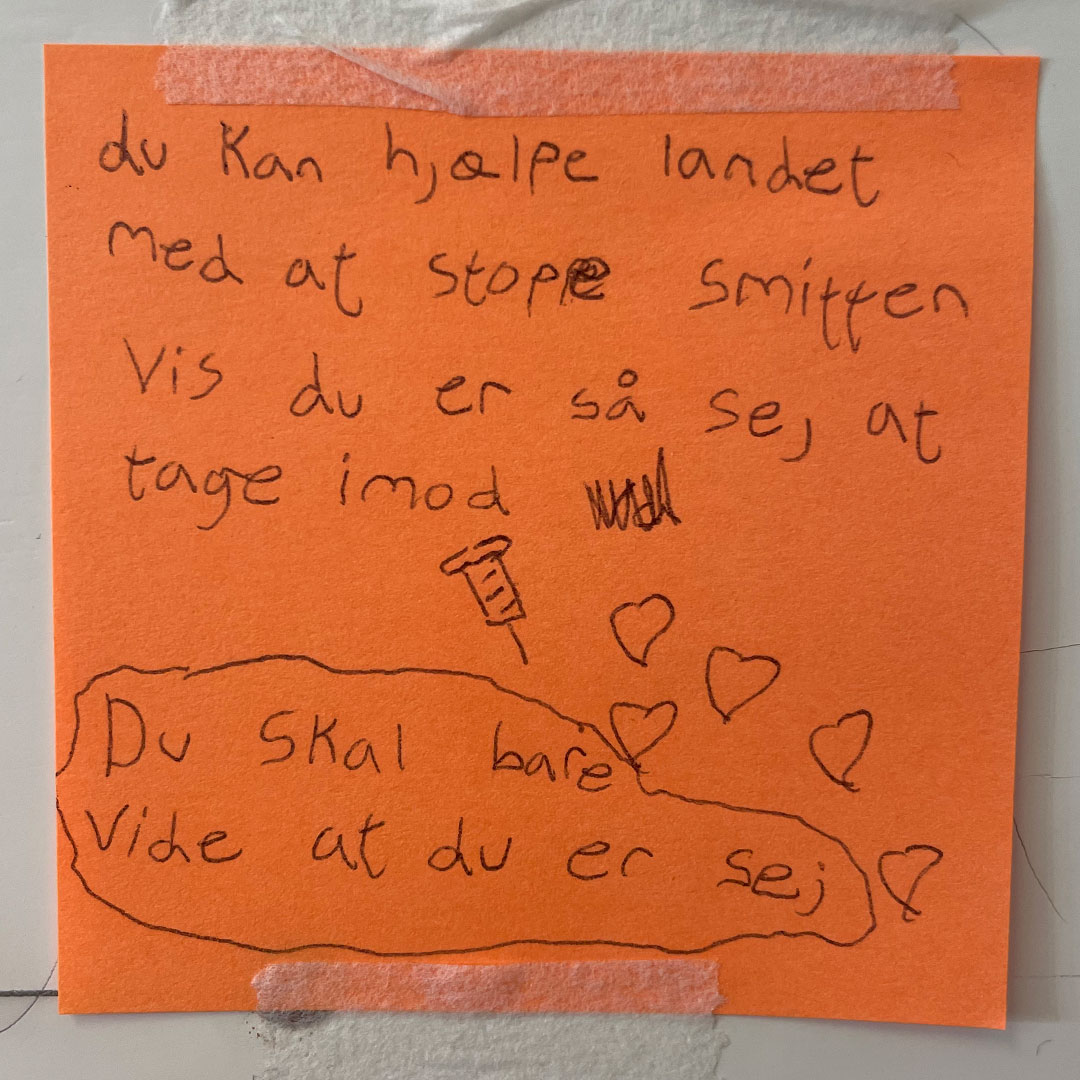 du kan hjælpe landet
med at stope smitten
Vis du er så sej at
tage imod
Du skal bare
vide at du er sej